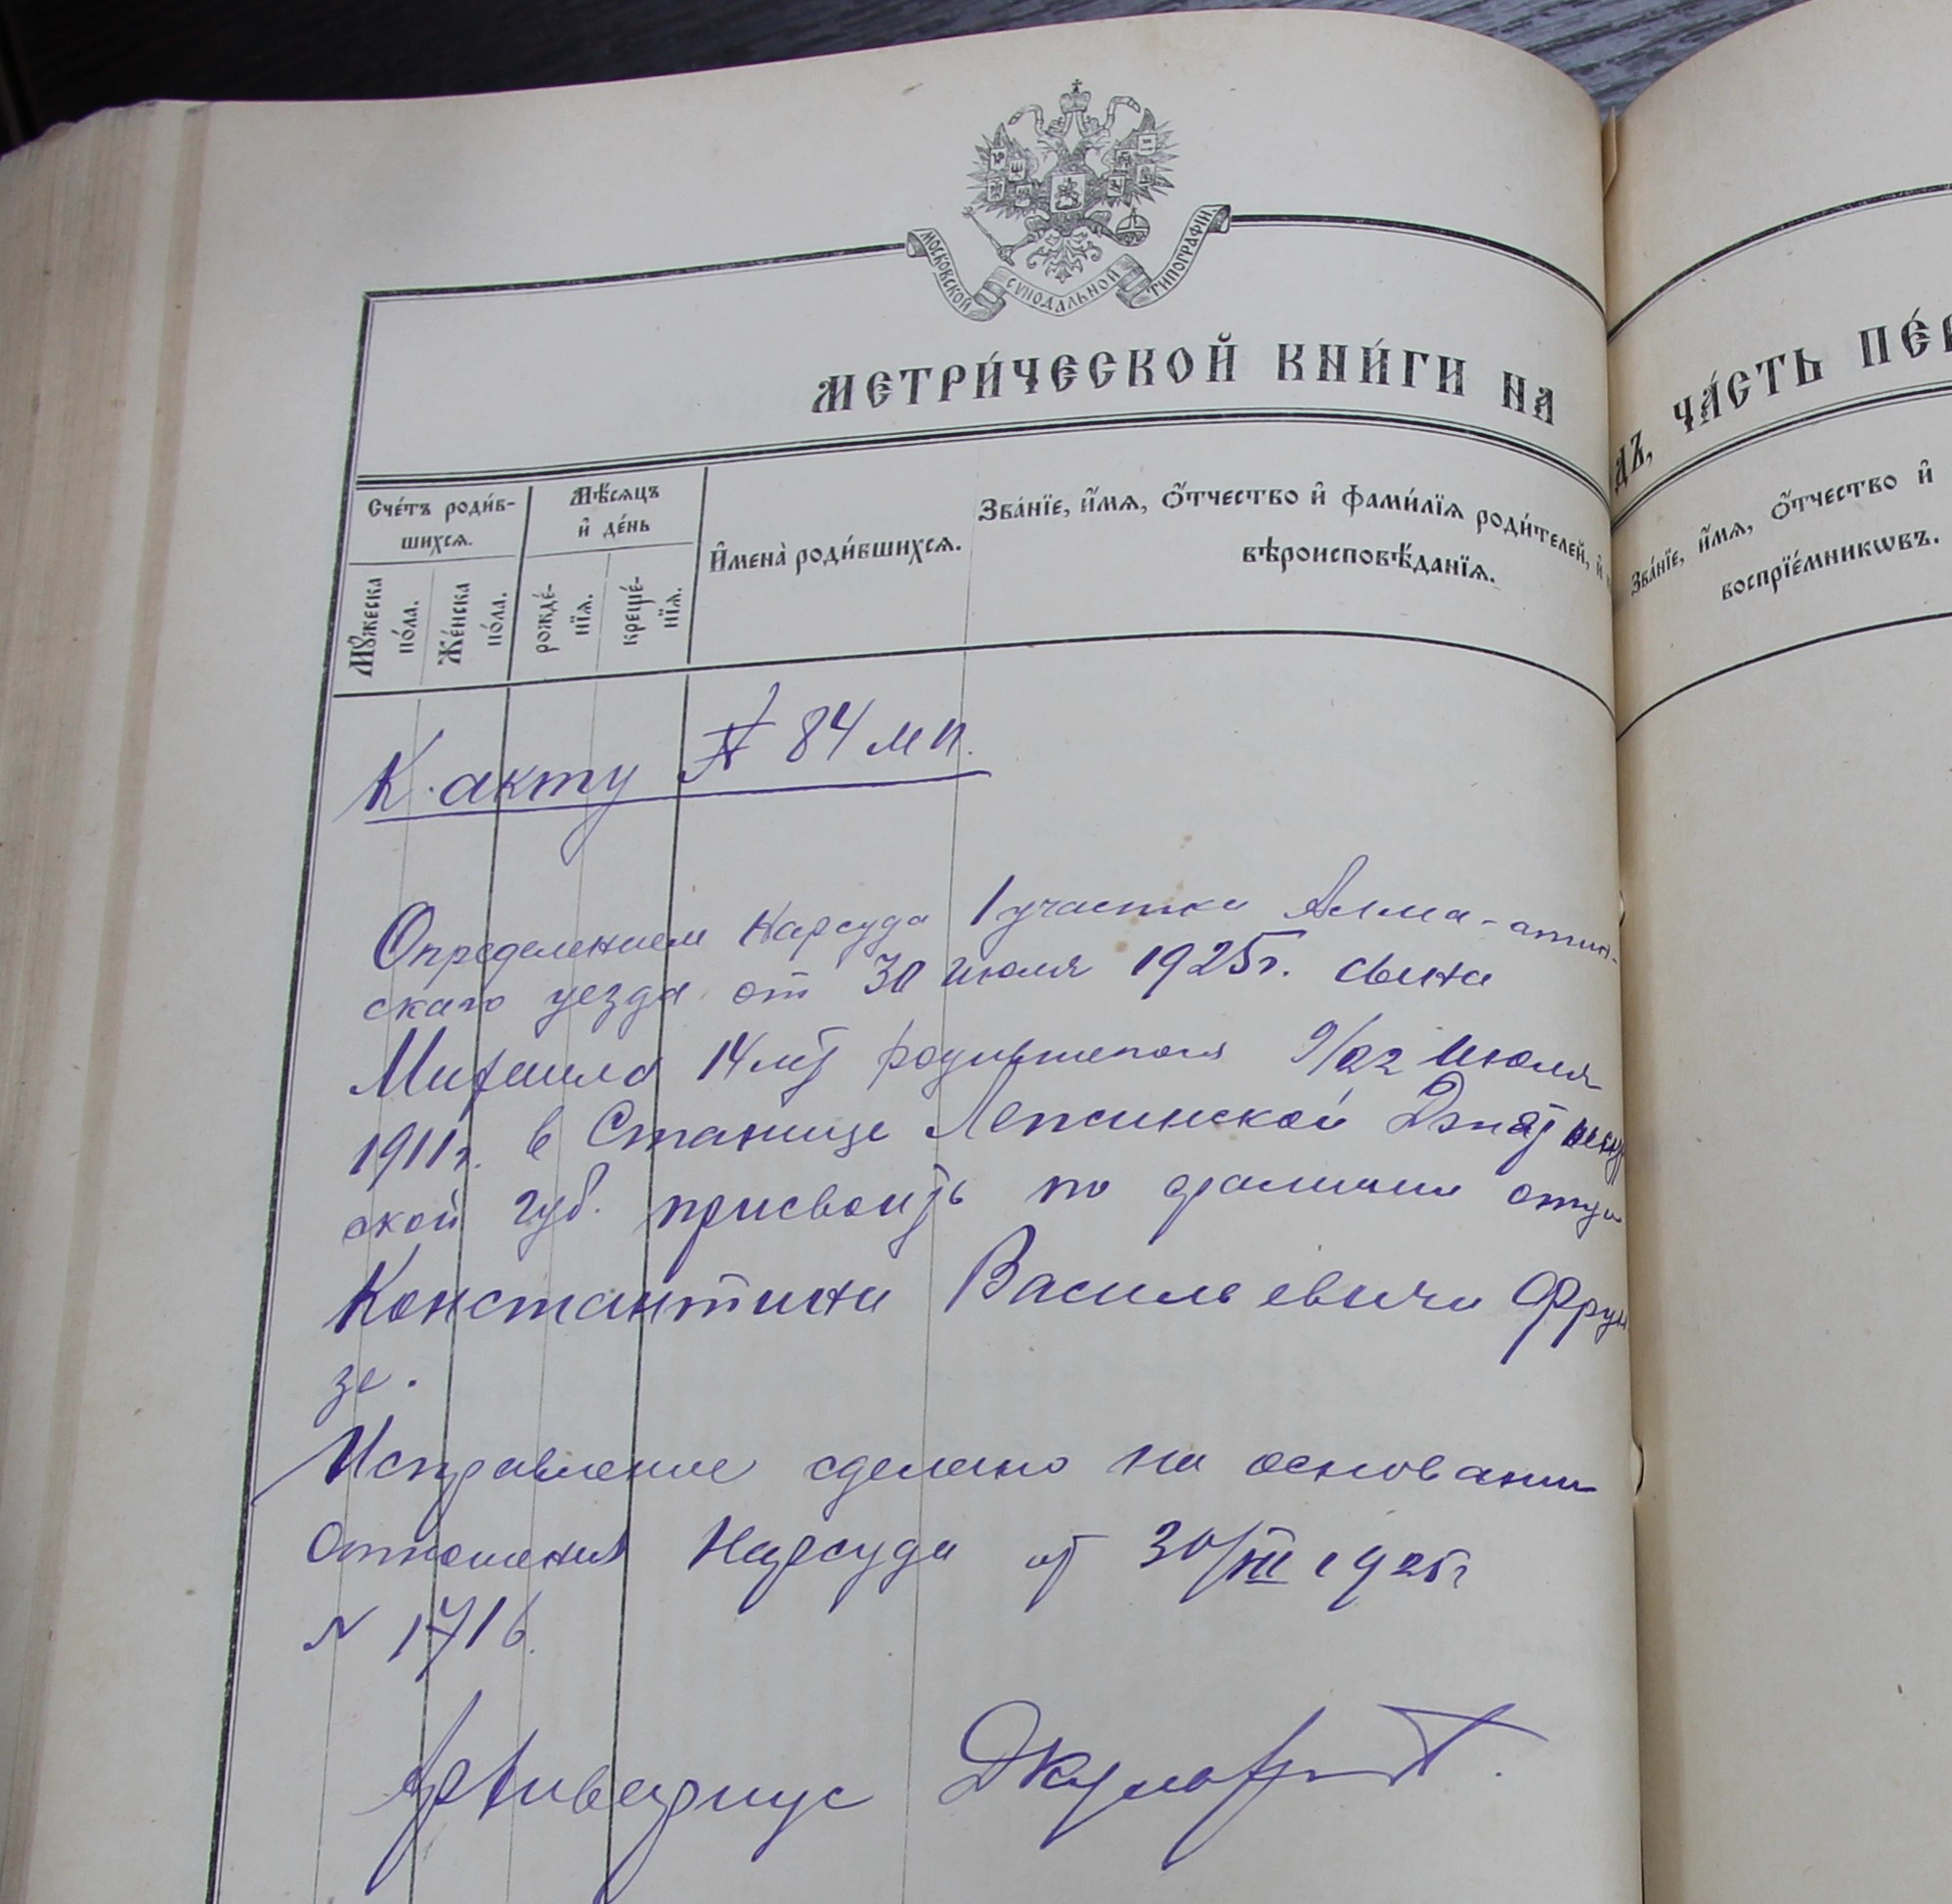 МОСКОВСКОЙ СУНОДАЛЬНОЙ ТИПОГРАФІИ.
МЕТРИ́ЧЕСКОЙ КНИ́ГИ НА
ДЪ, ЧА́СТЬ ПЕ́Р
Сче́тъ роди́в-
шихсѧ.
Мѣ́сѧцъ
и҆ де́нь
Мꙋ́жеска
по́ла.
Же́нска
по́ла.
рожде́-
нїѧ.
креще́-
нїѧ.
И҆мена̀ роди́вшихсѧ.
Зва́нїе, и҆́мѧ, ѻ҆́тчество и҆ фами́лїѧ роди́телей, и҆
вѣроисповѣ́данїѧ.
Зва́нїе, и҆́мѧ, ѻ҆́тчество и҆
воспрїе́мникѡвъ.
К акту № 84 мп.
Определением Нарсуда 1 участка Алма-атин-
скаго уезда от 30 июля 1925г. сына
Михаила 14 лет родившегося 9/22 июля
1911г. в Станице Лепсинской
ской губ. присвоить по фамилии отца
Константина Васильевича Фрун
зе.
Исправление сделано на основании
Отношения Нарсуда от 30/VII 1925г
№ 1716.
Архивариус